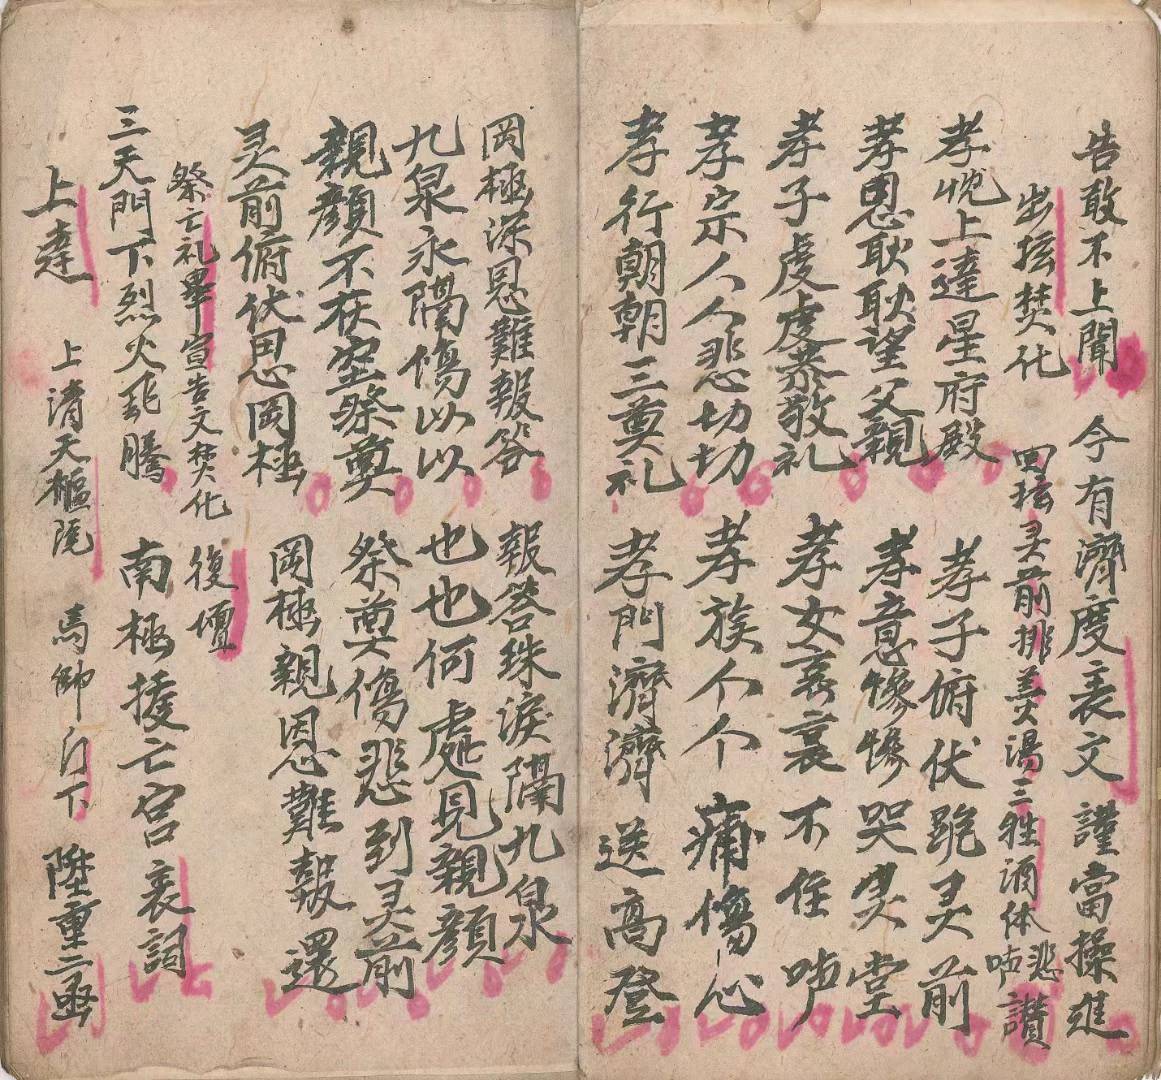 告敢不上聞 今有濟度表文 謹當操進
出坛焚化 回坛灵前排羙湯三牲酒体 悲声讃
孝悦上達星府殿 孝子俯伏跪灵前
孝恩耿耿望父親 孝意惨惨哭灵堂
孝子虔虔恭敬礼 孝女哀哀不住声
孝宗人人悲切切 孝族个个痛傷心
孝行朝朝三奠礼 孝門濟濟送高登
罔極深恩難報答 報答珠淚隔九泉
九泉永隔傷以以 也也何處見親顔
親顔不在空祭奠 祭奠傷悲到灵前
灵前俯伏思罔極 罔極親恩難報還
祭亡礼畢宣告文焚化 復壇
三天門下烈火飛騰 南極援亡宫表詞
上達 上清天樞院 馬帥门下 陞重二函